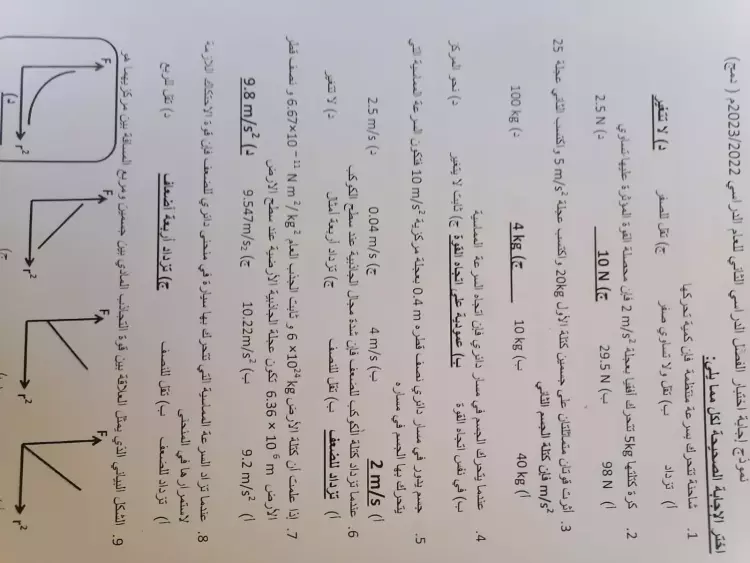 نموذج إجابة اختبار الفصل الدراسي الثاني للعام الدراسي 2023/2022م ( دمج)
اختر الإجابة الصحيحة لكل مما يلي:
1. شاحنة تتحرك بسرعة منتظمة فإن كمية تحركها
أ) تزداد ب) تقل ولا تساوي صفر ج) تقل للصفر د) لا تتغير
2. كرة كتلتها 5kg تتحرك أفقيا بعجلة 2 m/s² فإن محصلة القوة المؤثرة عليها تساوي
أ) 98 N ب) 29.5 N ج) 10 N د) 2.5 N
3. أثرت قوتان متماثلتان على جسمين كتلة الأول 20kg واكتسب عجلة 5 m/s² واكتسب الثاني عجلة 25
m/s² فإن كتلة الجسم الثاني
أ) 40 kg ب) 10 kg ج) 4 kg د) 100 kg
4. عندما يتحرك الجسم في مسار دائري فإن اتجاه السرعة المماسية
ب) في نفس اتجاه القوة ب) عمودية على اتجاه القوة ج) ثابت لا يتغير د) نحو المركز
5. جسم يدور في مسار دائري نصف قطره 0.4 m بعجلة مركزية 10 m/s² فتكون السرعة المماسية التي
يتحرك بها الجسم في مساره
أ) 2 m/s ب) 4 m/s ج) 0.04 m/s د) 2.5 m/s
6. عندما تزداد كتلة الكوكب للضعف فإن شدة مجال الجاذبية عند سطح الكوكب
أ) تزداد للضعف ب) تقل للنصف ج) تزداد أربعة أمثال د) لا تتغير
7. إذا علمت ان كتلة الأرض 6 ×10²⁴ kg و ثابت الجذب العام 6.67×10⁻¹¹ N m²/kg² و نصف قطر
الأرض 6.36 × 10⁶ m تكون عجلة الجاذبية الأرضية عند سطح الأرض
أ) 9.2 m/s² ب) 10.22m/s² ج) 9.547m/s₂ د) 9.8 m/s²
8. عندما تزداد السرعة المماسية التي تتحرك بها سيارة في منحنى دائري للضعف فإن قوة الاحتكاك اللازمة
لاستمرارها في المنحنى
أ) تزداد للضعف ب) تقل للنصف ج) تزداد أربعة أضعاف د) تقل للربع
9. الشكل البياني الذي يمثل العلاقة بين قوة التجاذب المادي بين جسمين ومربع المسافة بين مركزيهما هو
F F F F
r² r² r² r²
ج) د)